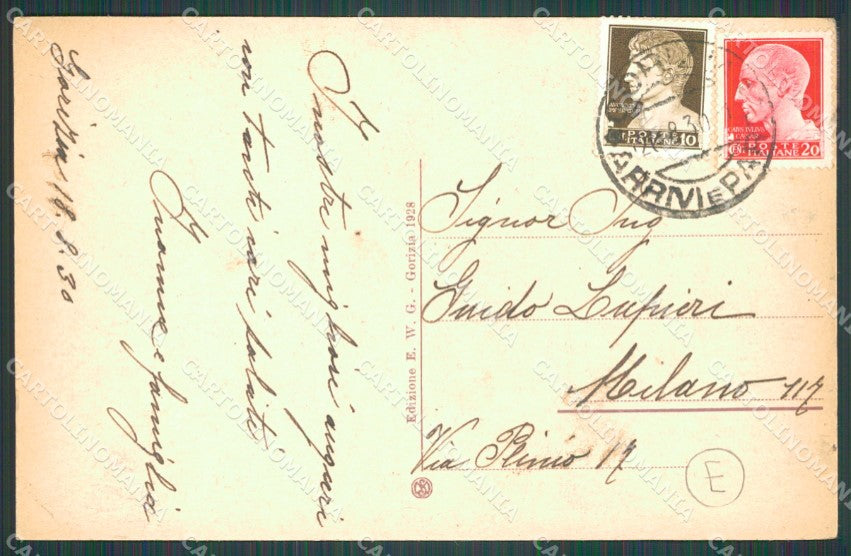 Gorizia 18.8.30
I nostri migliori auguri
con tanti cari saluti
e famiglia
Edizione E. W. G. - Gorizia 1928
POSTE ITALIANE 10
CAIVS IVLIVS CAESAR
POSTE ITALIANE 20
ARRIVI E PA
Signor Ing
Guido Lupieri
Milano 117
Via Plinio 17
E
CARTOLINOMANIA